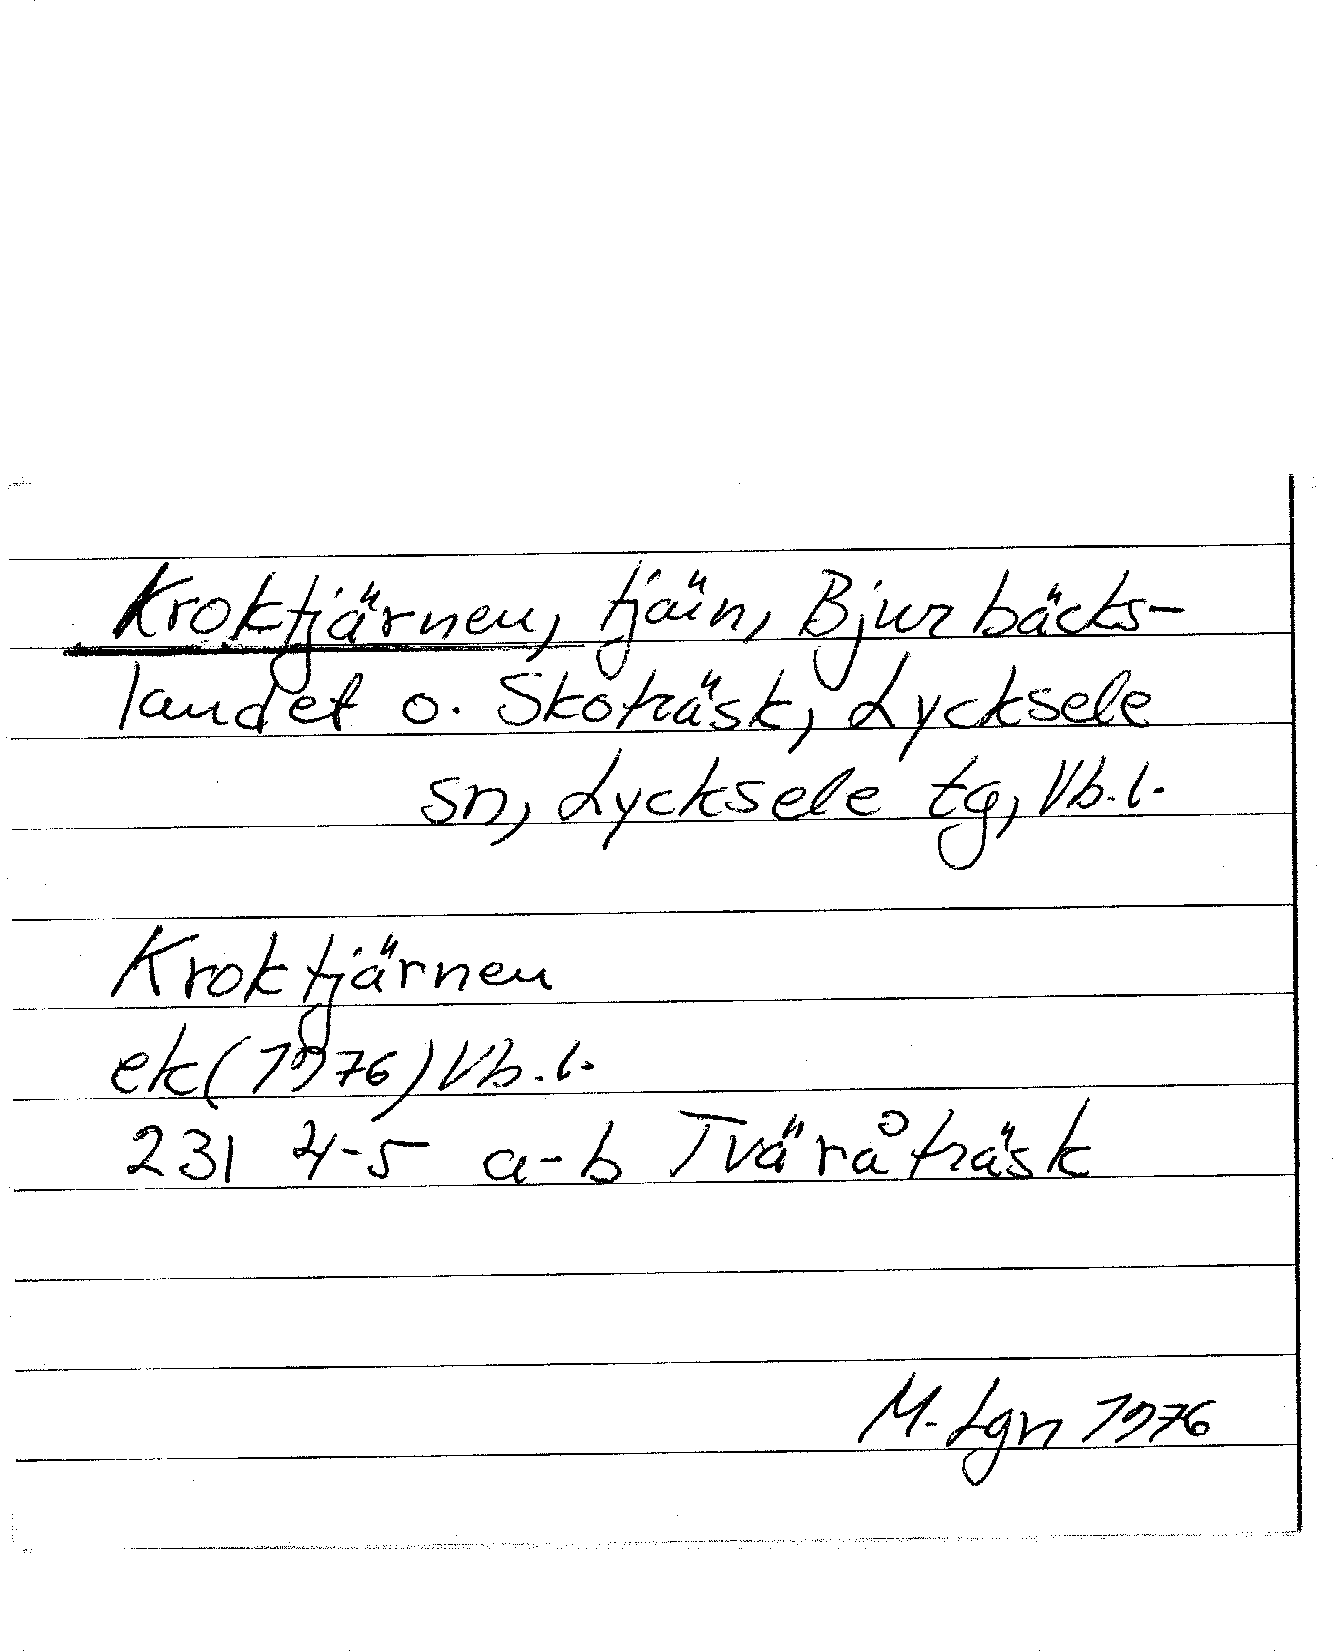 Kroktjärnen, tjärn, Bjurbäcks-
landet o. Skoträsk, Lycksele
sn, Lycksele tg, Vb.l.
Kroktjärnen
ek(1976)Vb.l.
231 4-5 a-b Tväråträsk
M. Lgn 1976